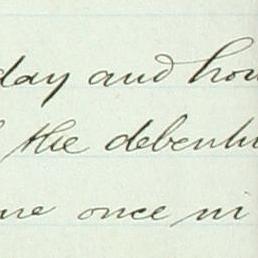 day and hou
the debentu
me once in